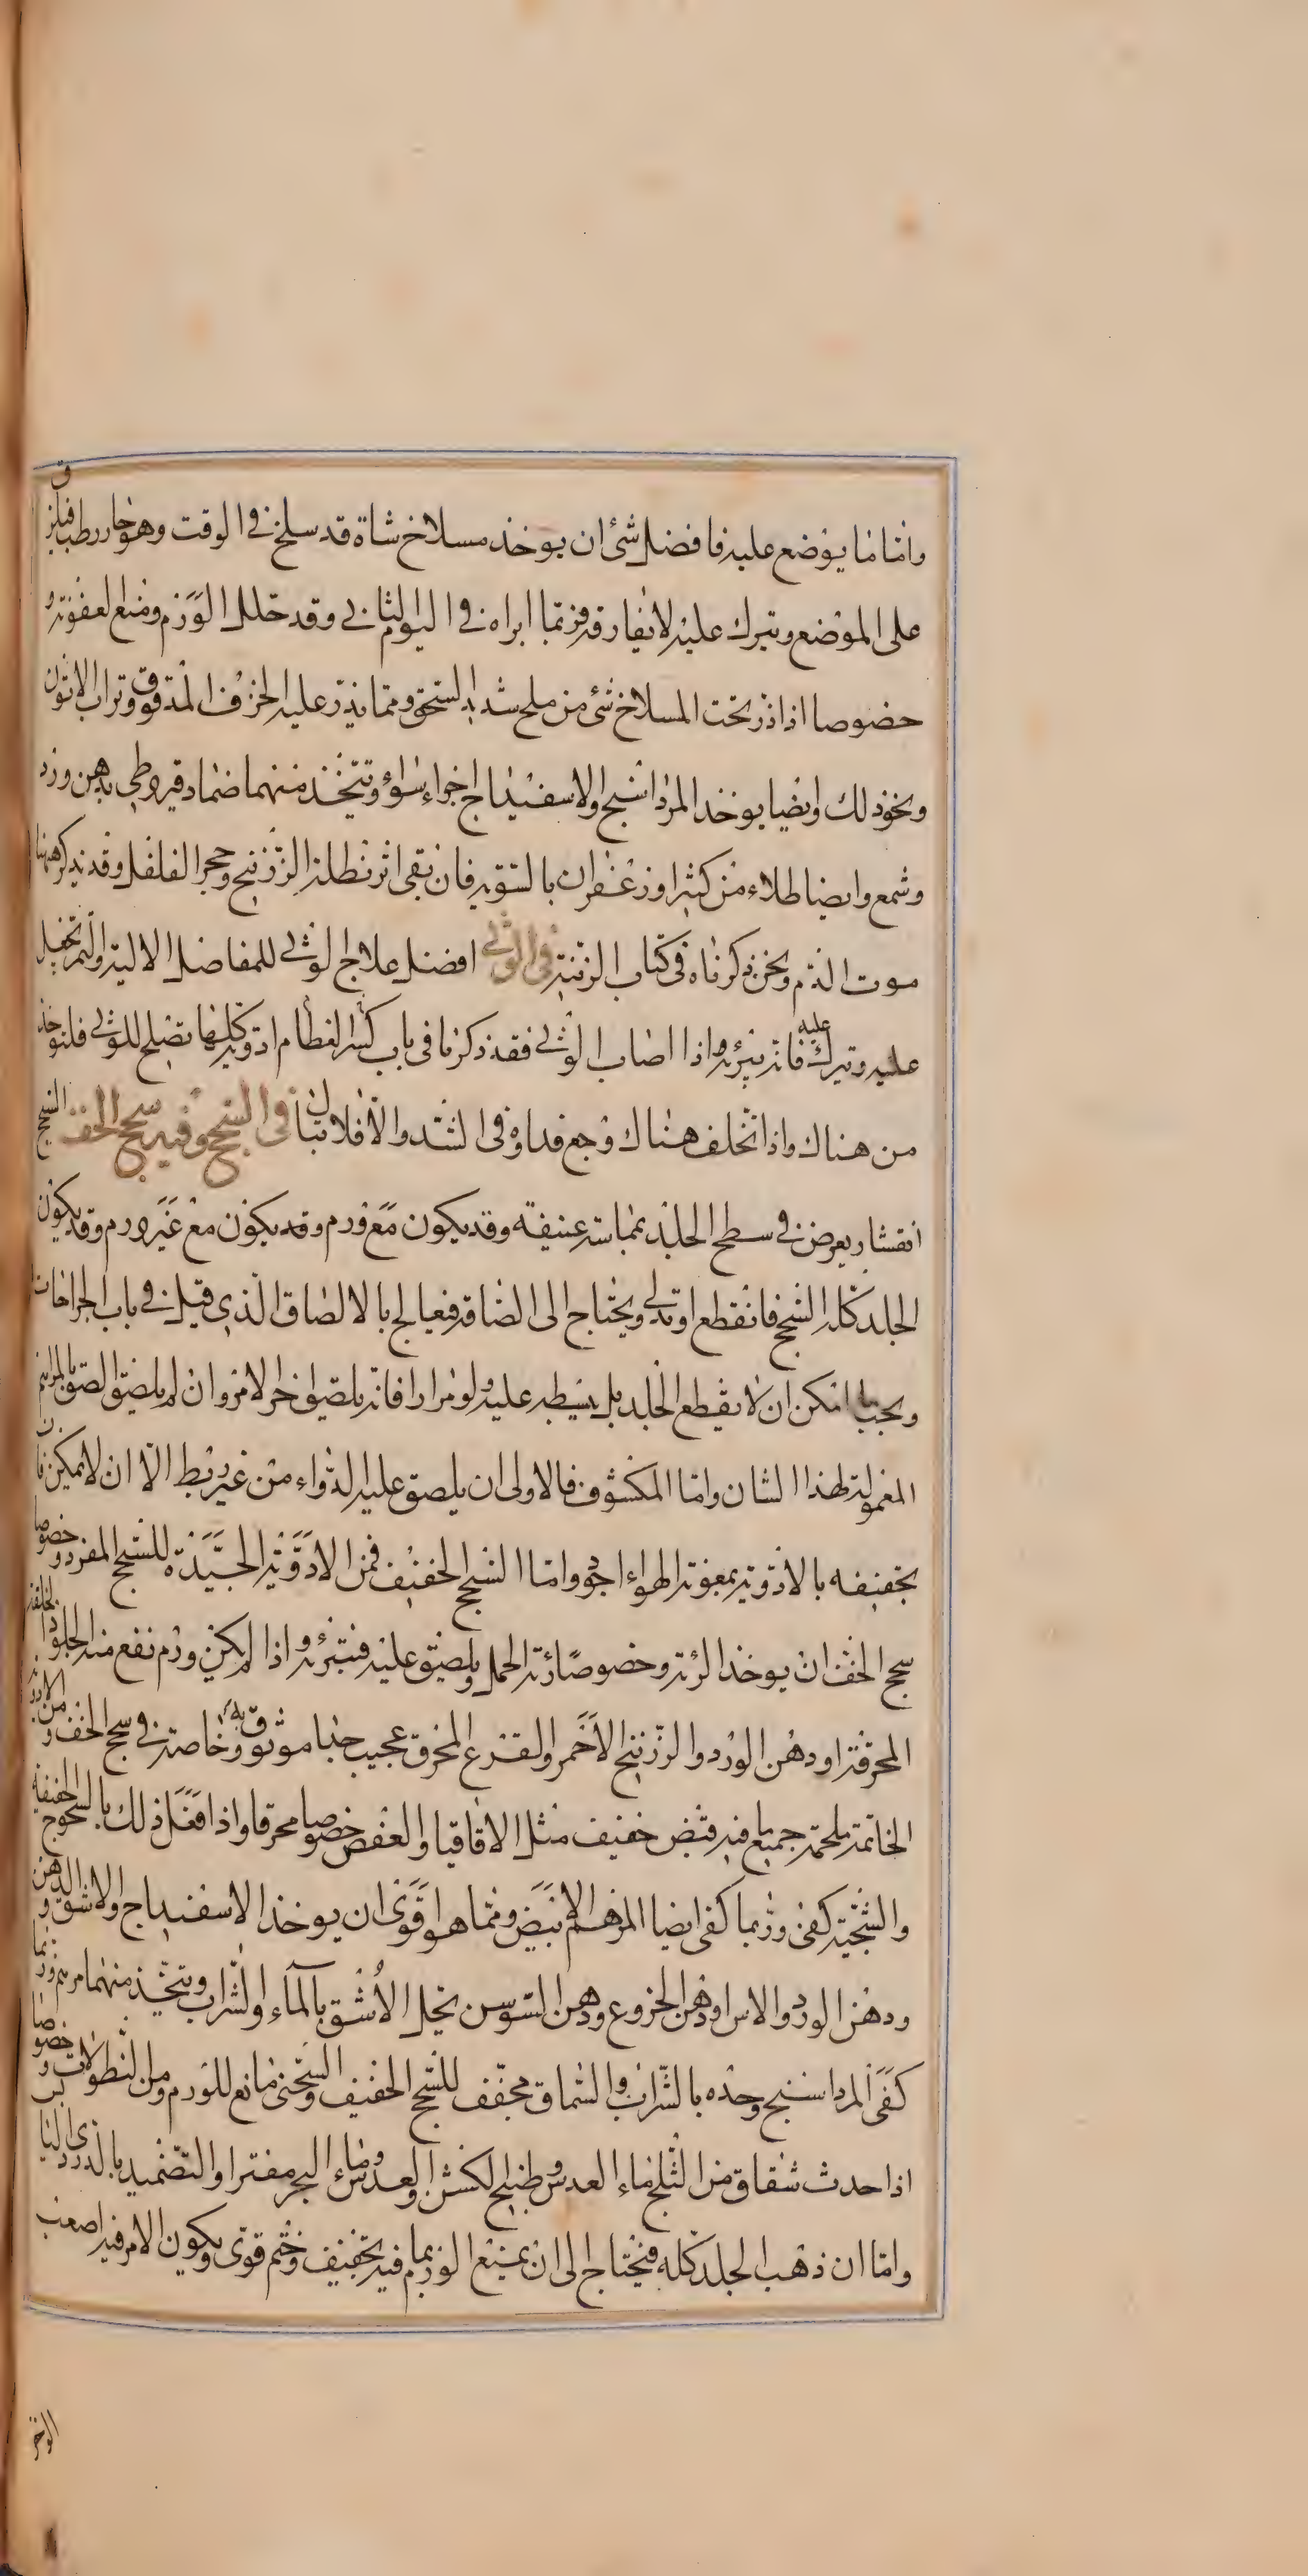 واما ما يوضع عليه فافضل شئ ان يوخذ مسلاخ شاة قد سلخ في الوقت وهو حار رطب فيلزق
على الموضع ويترك عليه لا يفارقه فربما ابراه في اليوم الثاني وقد حلل الورم ومنع العفونة و
خصوصا اذا ذر تحت المسلاخ شئ من ملح شديد السحق ومما يذر عليه الخزف المدقوق وتراب الاتون
ونحو ذلك وايضا يوخذ المرداسنج والاسفيداج اجزاء سواء ويتخذ منهما ضماد قيروطي بدهن ورد
وشمع وايضا طلاء من كثيرا وزعفران بالسوية فان بقى اثر نطله الزرنيخ وحجر الفلفل وقد يذكر ههنا
موت الدم ونحن ذكرناه في كتاب الزينة في الوثي افضل علاج الوثي للمفاصل الالية والتمر تجعل
عليه وتترك عليه فانه يبرئه واذا اصاب الوثي فقد ذكرنا في باب كسر العظام ادوية كلها تصلح للوثي فلتوخذ
من هناك واذا تخلف هناك وجع فداوه في الشد والا فلا تبال في السحج وفيه سحج الخف السحج
انقشار يعرض في سطح الجلد بمماسة عنيفة وقد يكون مع ورم وقد يكون مع غير ورم وقد يكون
الجلد كله السحج فانقطع او تدلي ويحتاج الى الصاقه فيعالج بالالصاق الذي قيل في باب الجراحات
ويجب ما امكن ان لا يقطع الجلد بل يبسط عليه ولو مرارا فانه يلصق اخر الامر وان لم يلصق الصق بالمراهم
المعمولة لهذا الشان واما المكشوف فالاولى ان يلصق عليه الدواء من غير ربط الا ان لا يمكن فان
تجفيفه بالادوية بمعونة الهواء اجود واما السحج الخفيف فمن الادوية الجيدة للسحج المفرد وخصوصا
سحج الخف ان يوخذ الرئة وخصوصا رئة الحمل ويلصق عليه فتبرئه واذا لم يكن ورم نفع منه الجلود الخلقة
المحرقة او دهن الورد والزرنيخ الاحمر والقرع المحرق عجيب جدا موثوق به وخاصة في سحج الخف ومن الادوية
الخاتمة ملحمة جميع ما فيه قبض خفيف مثل الاقاقيا والعفص خصوصا محرقا واذا فعل ذلك بالسحوج الخفيفة
والشجية كفى وربما كفى ايضا المرهم الابيض ومما هو اقوى ان يوخذ الاسفيداج والاشق والدهن
ودهن الورد والاس او دهن الخروع ودهن السوسن يحل الاشق بالماء والشراب ويتخذ منهما مرهم وربما
كفى المرداسنج وحده بالشراب والسماق مجفف للسحج الخفيف والسخنى مانع للورم ومن النطولات وخصوصا
اذا حدث شقاق من الثلج ماء العدس وطبيخ الكشن والعدس وماء البحر مفترا والتضميد بالدردى اليابس
واما ان ذهب الجلد كله فيحتاج الى ان يمنع الورم بما فيه تجفيف وختم قوى ويكون الامر فيه اصعب